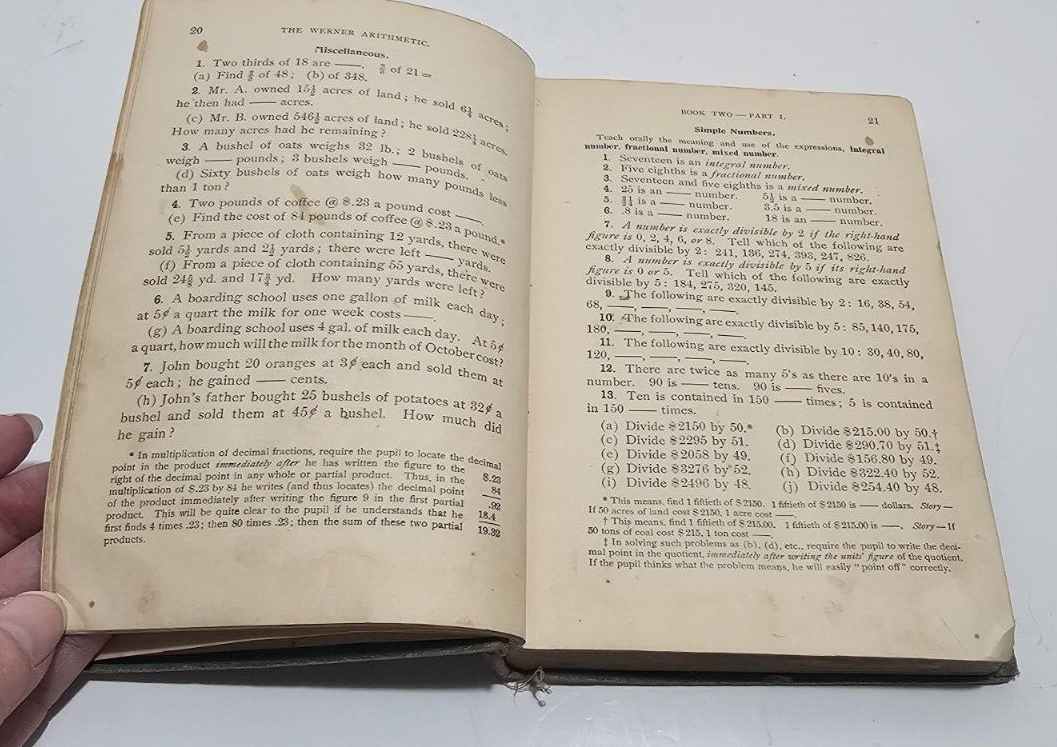 20 THE WERNER ARITHMETIC.
Miscellaneous.
1. Two thirds of 18 are ——. ⅔ of 21 =
(a) Find of 48; (b) of 348.
2. Mr. A. owned 15½ acres of land; he sold 6¼ acres;
he then had —— acres.
(c) Mr. B. owned 546½ acres of land; he sold 228¼ acres.
How many acres had he remaining?
3. A bushel of oats weighs 32 lb.; 2 bushels of oats
weigh —— pounds; 3 bushels weigh —— pounds.
(d) Sixty bushels of oats weigh how many pounds less
than 1 ton?
4. Two pounds of coffee @ $.23 a pound cost ——.
(e) Find the cost of 84 pounds of coffee @ $.23 a pound.*
5. From a piece of cloth containing 12 yards, there were
sold 5½ yards and 2½ yards; there were left —— yards.
(f) From a piece of cloth containing 55 yards, there were
sold yd. and yd. How many yards were left?
6. A boarding school uses one gallon of milk each day;
at 5¢ a quart the milk for one week costs ——.
(g) A boarding school uses 4 gal. of milk each day. At 5¢
a quart, how much will the milk for the month of October cost?
7. John bought 20 oranges at 3¢ each and sold them at
5¢ each; he gained —— cents.
(h) John's father bought 25 bushels of potatoes at 32¢ a
bushel and sold them at 45¢ a bushel. How much did
he gain?
* In multiplication of decimal fractions, require the pupil to locate the decimal
point in the product immediately after he has written the figure to the
right of the decimal point in any whole or partial product. Thus, in the
multiplication of $.23 by 84 he writes (and thus locates) the decimal point
of the product immediately after writing the figure 9 in the first partial
product. This will be quite clear to the pupil if he understands that he
first finds 4 times .23; then 80 times .23; then the sum of these two partial
products.
$.23
84
.92
18.4
19.32
BOOK TWO — PART I. 21
Simple Numbers.
Teach orally the meaning and use of the expressions, integral
number, fractional number, mixed number.
1. Seventeen is an integral number.
2. Five eighths is a fractional number.
3. Seventeen and five eighths is a mixed number.
4. 25 is an —— number. 5½ is a —— number.
5. is a —— number. 3.5 is a —— number.
6. .8 is a —— number. 18 is an —— number.
7. A number is exactly divisible by 2 if the right-hand
figure is 0, 2, 4, 6, or 8. Tell which of the following are
exactly divisible by 2: 241, 136, 274, 393, 247, 826.
8. A number is exactly divisible by 5 if its right-hand
figure is 0 or 5. Tell which of the following are exactly
divisible by 5: 184, 275, 320, 145.
9. The following are exactly divisible by 2: 16, 38, 54,
68, ——, ——, ——, ——.
10. The following are exactly divisible by 5: 85, 140, 175,
180, ——, ——, ——, ——.
11. The following are exactly divisible by 10: 30, 40, 80,
120, ——, ——, ——, ——.
12. There are twice as many 5's as there are 10's in a
number. 90 is —— tens. 90 is —— fives.
13. Ten is contained in 150 —— times; 5 is contained
in 150 —— times.
(a) Divide $2150 by 50.* (b) Divide $215.00 by 50.†
(c) Divide $2295 by 51. (d) Divide $290.70 by 51.‡
(e) Divide $2058 by 49. (f) Divide $156.80 by 49.
(g) Divide $3276 by 52. (h) Divide $322.40 by 52.
(i) Divide $2496 by 48. (j) Divide $254.40 by 48.
* This means, find 1 fiftieth of $2150. 1 fiftieth of $2150 is —— dollars. Story—
If 50 acres of land cost $2150, 1 acre cost ——.
† This means, find 1 fiftieth of $215.00. 1 fiftieth of $215.00 is ——. Story—If
50 tons of coal cost $215, 1 ton cost ——.
‡ In solving such problems as (b), (d), etc., require the pupil to write the deci-
mal point in the quotient, immediately after writing the units' figure of the quotient.
If the pupil thinks what the problem means, he will easily "point off" correctly.